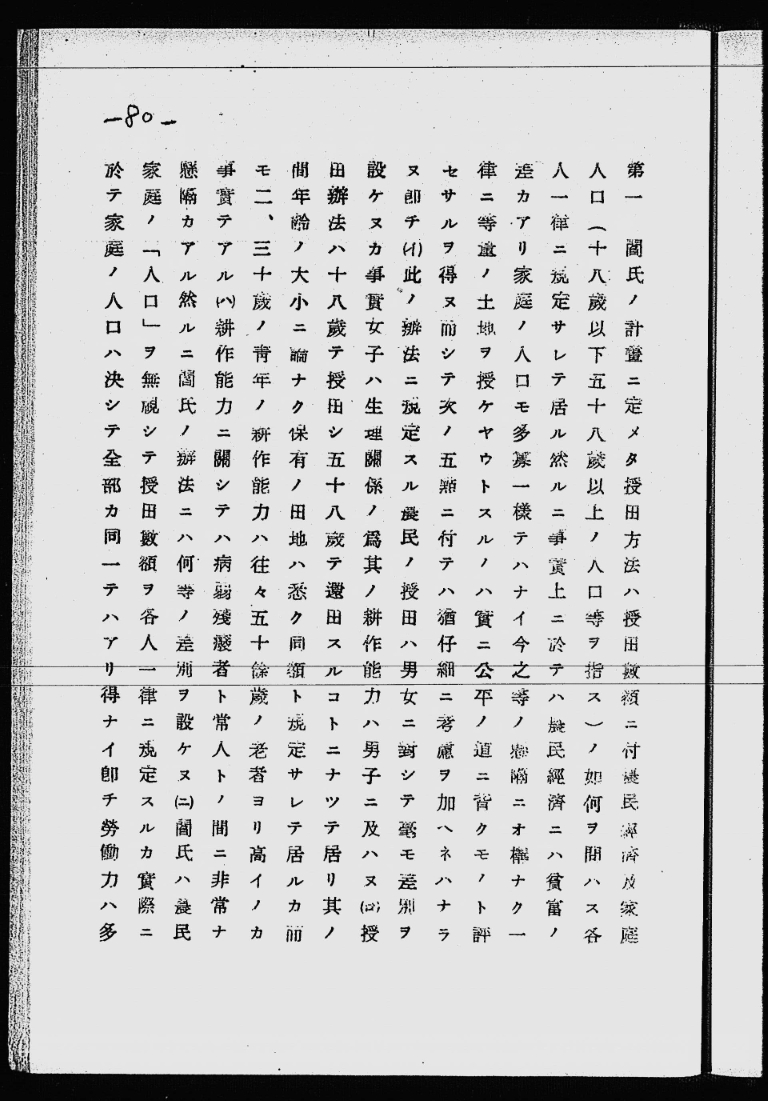 —80—
第一 閻氏ノ計畫ニ定メタ授田方法ハ授田數額ニ付農民經濟及家庭
人口(十八歲以下五十八歲以上ノ人口等ヲ指ス)ノ如何ヲ問ハス各
人一律ニ規定サレテ居ル然ルニ事實上ニ於テハ農民經濟ニハ貧富ノ
差カアリ家庭ノ人口モ多寡一樣テハナイ今之等ノ懸隔ニオ構ナク一
律ニ等量ノ土地ヲ授ケヤウトスルノハ實ニ公平ノ道ニ背クモノト評
セサルヲ得ヌ而シテ次ノ五點ニ付テハ猶仔細ニ考慮ヲ加ヘネハナラ
ヌ卽チ(イ)此ノ辦法ニ規定スル農民ノ授田ハ男女ニ對シテ毫モ差別ヲ
設ケヌカ事實女子ハ生理關係ノ爲其ノ耕作能力ハ男子ニ及ハヌ(ロ)授
田辦法ハ十八歲テ授田シ五十八歲テ還田スルコトニナツテ居リ其ノ
間年齡ノ大小ニ論ナク保有ノ田地ハ悉ク同額ト規定サレテ居ルカ而
モ二、三十歲ノ靑年ノ耕作能力ハ往々五十餘歲ノ老者ヨリ高イノカ
事實テアル(ハ)耕作能力ニ關シテハ病弱殘癈者ト常人トノ間ニ非常ナ
懸隔カアル然ルニ閻氏ノ辦法ニハ何等ノ差別ヲ設ケヌ(ニ)閻氏ハ農民
家庭ノ「人口」ヲ無視シテ授田數額ヲ各人一律ニ規定スルカ實際ニ
於テ家庭ノ人口ハ決シテ全部カ同一テハアリ得ナイ卽チ勞働力ハ多